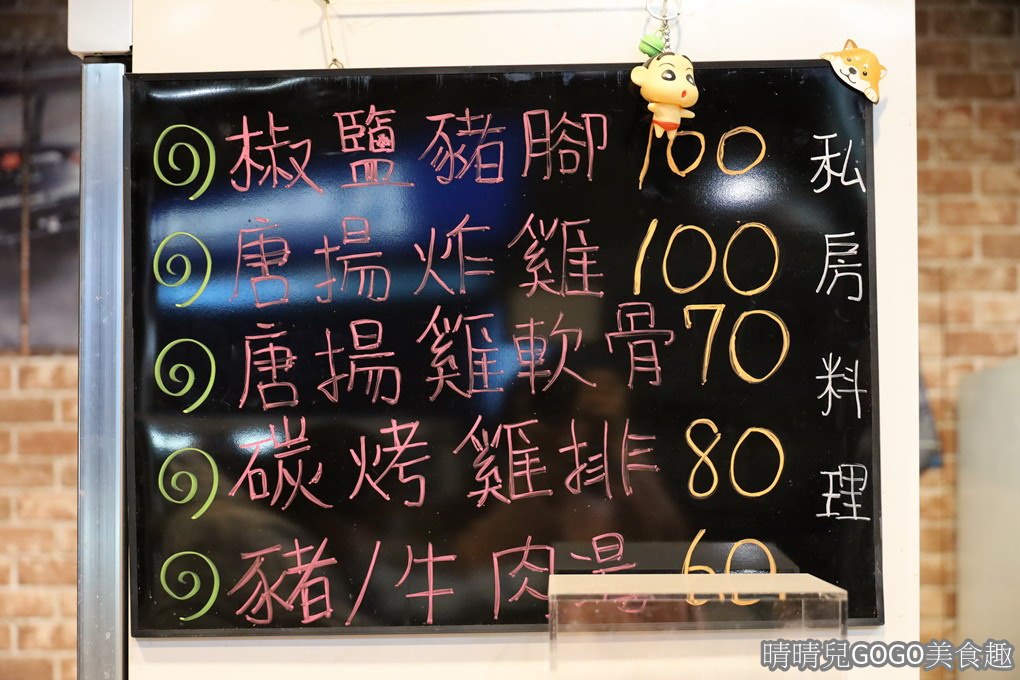 椒鹽豬腳 100
唐揚炸雞 100
唐揚雞軟骨 70
碳烤雞排 80
豬/牛肉湯 60
私房料理
晴晴兒GOGO美食趣